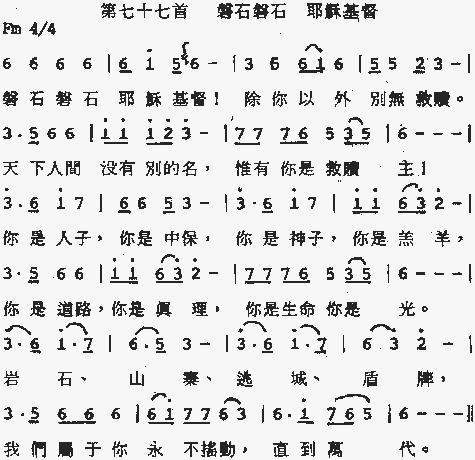 第七十七首 磐石磐石 耶穌基督
Fm 4/4
6 6 6 6 | 6 i 5 6 - | 3 6 6 i 6 | 5 5 2 3 - |
磐石磐石 耶穌基督! 除你以外 別無救贖。
3 . 5 6 6 | i i i 2 3 - | 7 7 7 6 5 3 5 | 6 - - - |
天下人間 沒有別的名, 惟有你是救贖 主!
3 . 6 i 7 | 6 6 5 3 - | 3 . 6 i 7 | i i 6 3 2 - |
你是人子, 你是中保, 你是神子, 你是羔羊,
3 . 5 6 6 | i i 6 3 2 - | 7 7 7 6 5 3 5 | 6 - - - |
你是道路, 你是眞理, 你是生命你是 光。
3 . 6 i . 7 | 6 . 5 3 - | 3 . 6 i . 7 | 6 3 2 - |
岩石、山寨、逃城、盾牌,
3 . 5 6 6 6 | 6 i 7 7 6 3 | 6 . i 7 6 5 | 6 - - - ‖
我們屬于你永不搖動, 直到萬 代。